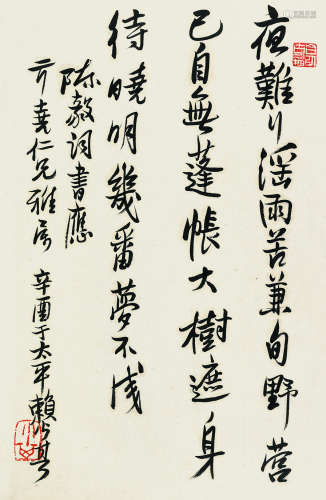 夜難行淫雨苦兼旬野營
已自無蓬帳大樹遮身
待曉明幾番夢不成
陳毅詞書應
堯仁兄雅屬 辛酉于太平賴少其